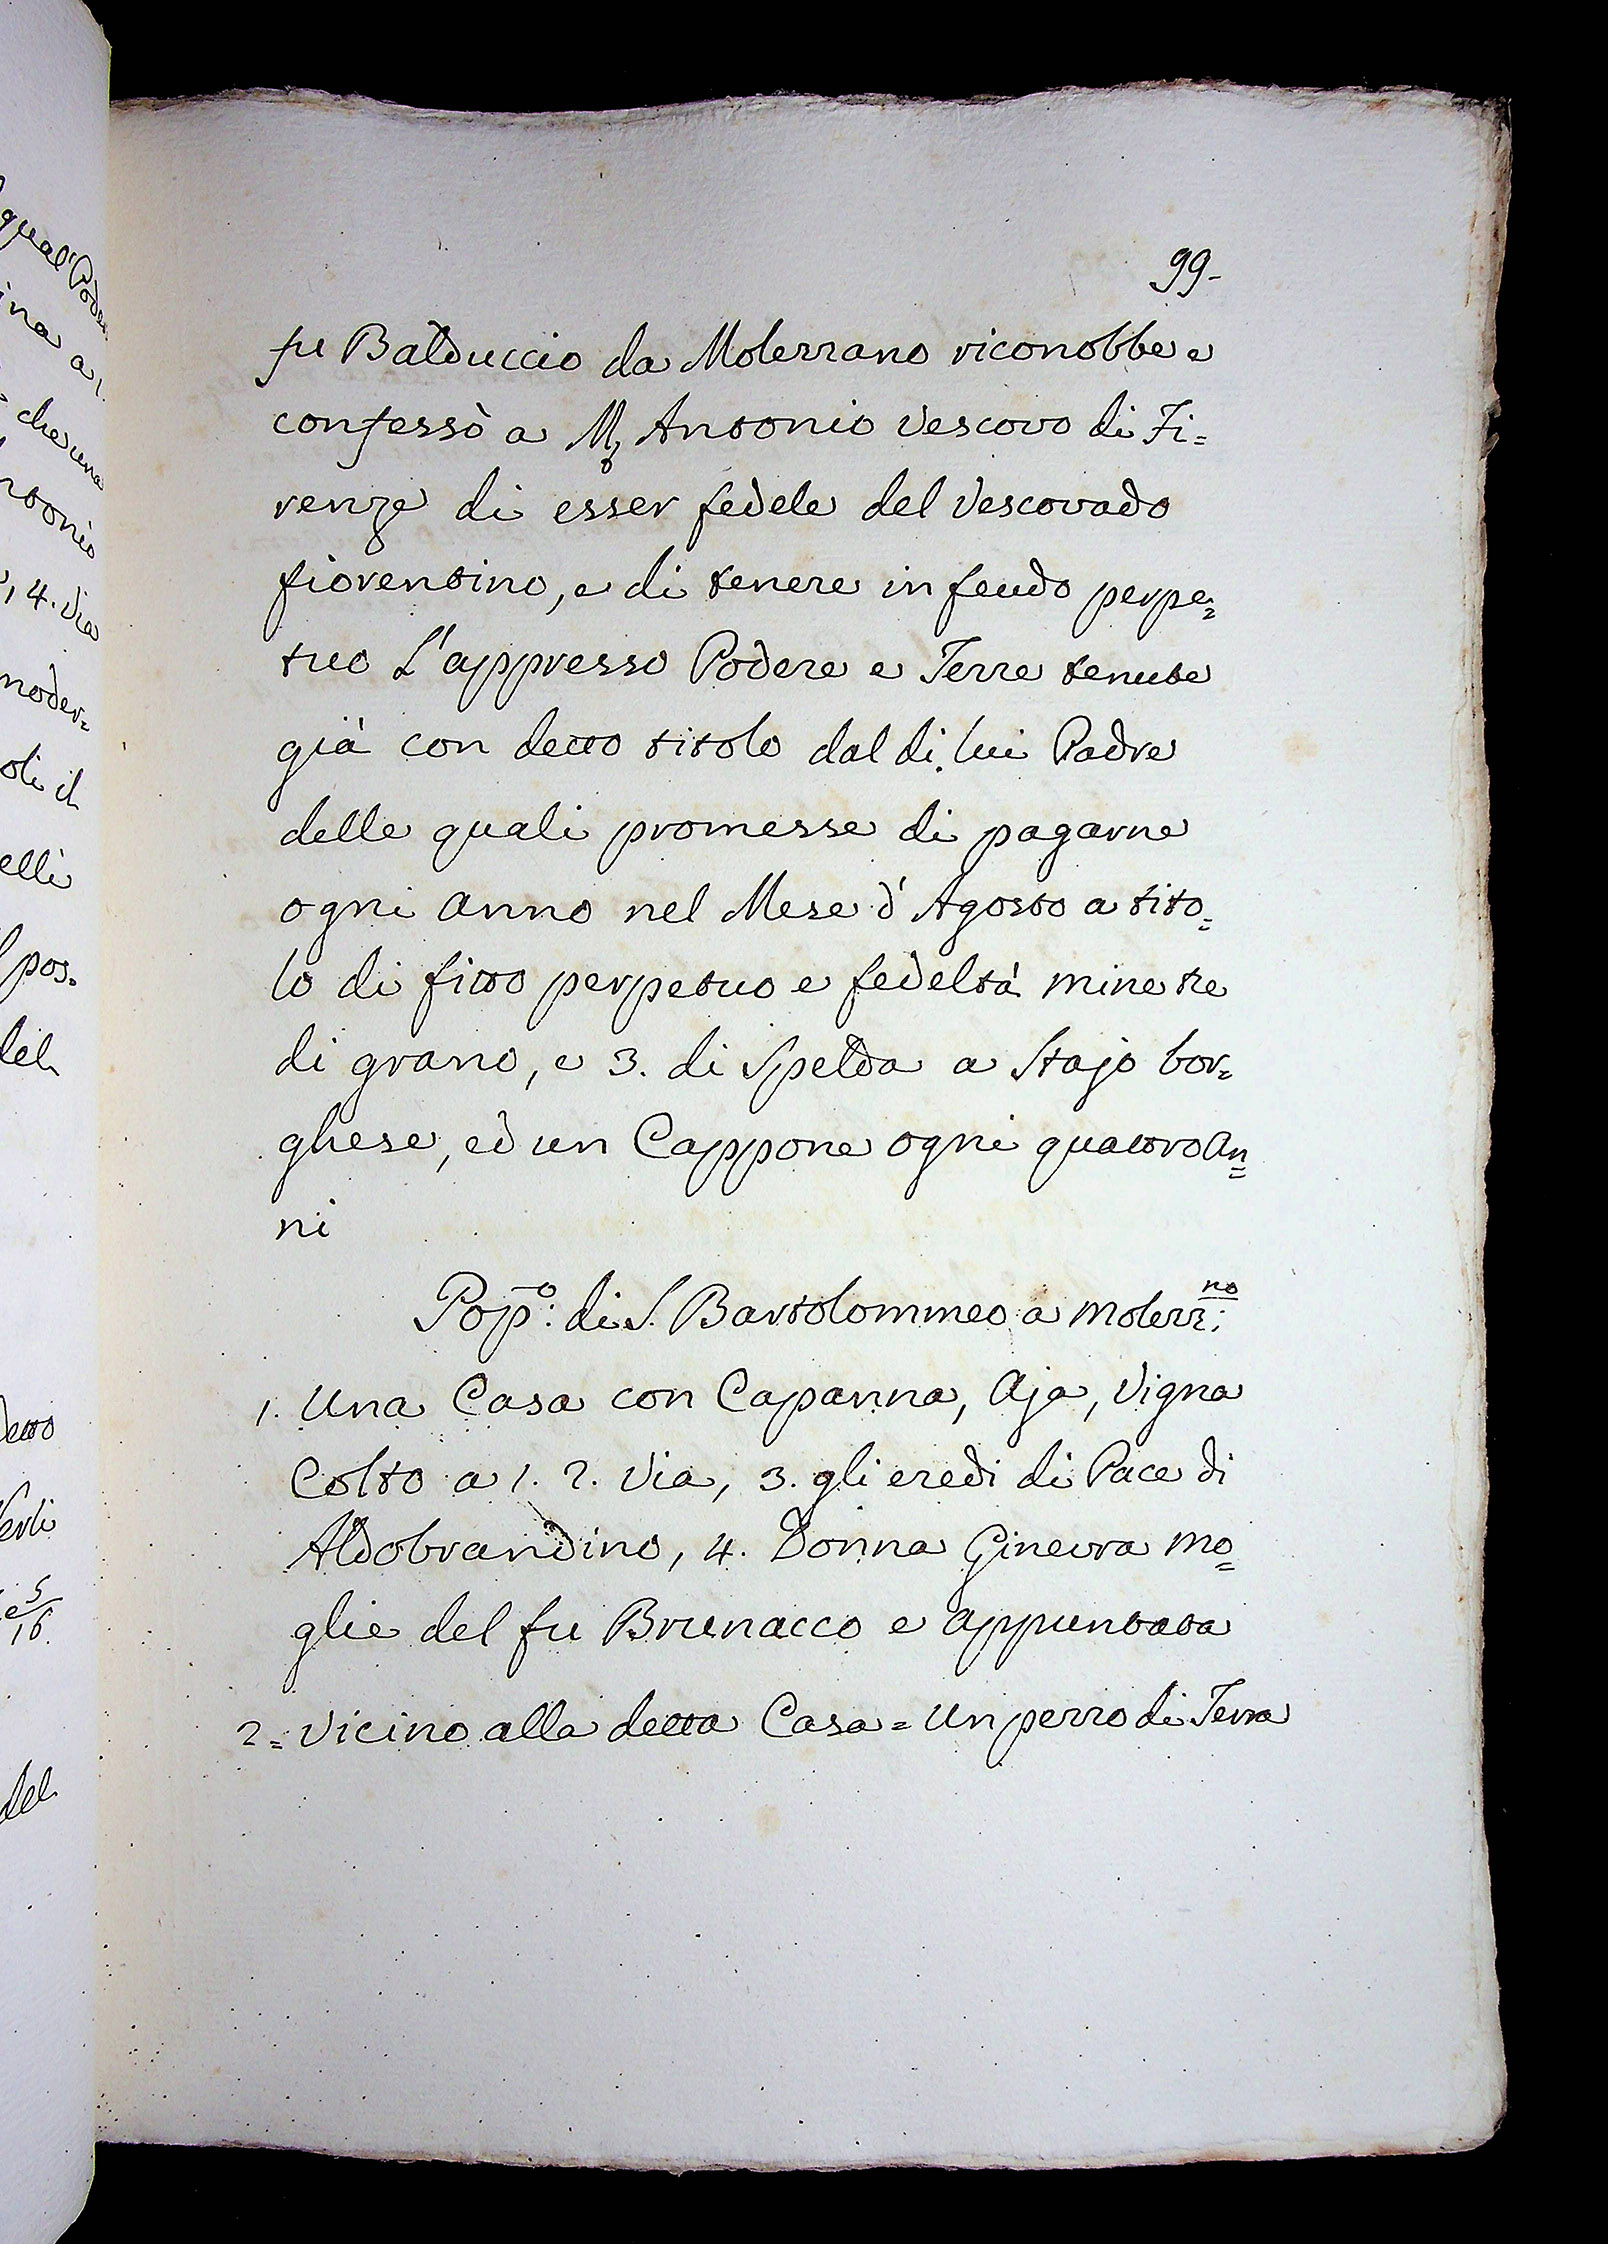 99-
fu Balduccio da Molezzano riconobbe e
confessò a M. Antonio Vescovo di Fi=
renze di esser fedele del Vescovado
fiorentino, e di tenere in feudo perpe=
tuo L'appresso Podere e Terre tenute
già con detto titolo dal di lui Padre
delle quali promesse di pagarne
ogni anno nel Mese d'Agosto a tito=
lo di fitto perpetuo e fedeltà mine tre
di grano, e 3. di Spelda a Stajo bor=
ghese, ed un Cappone ogni quattro An=
ni
Popº: di S. Bartolommeo a Molezz:no
1. Una Casa con Capanna, Aja, Vigna
Colto a 1. 2. Via, 3. gli eredi di Pace di
Aldobrandino, 4. Donna Ginevra mo=
glie del fu Brunacco e appuntata
2= Vicino alla detta Casa = Un pezzo di Terra
qual' Pode
ina a 1.
che una
ntonio
, 4. Via
moder=
oli il
elli
pos=
del
Detto
5
16.
del